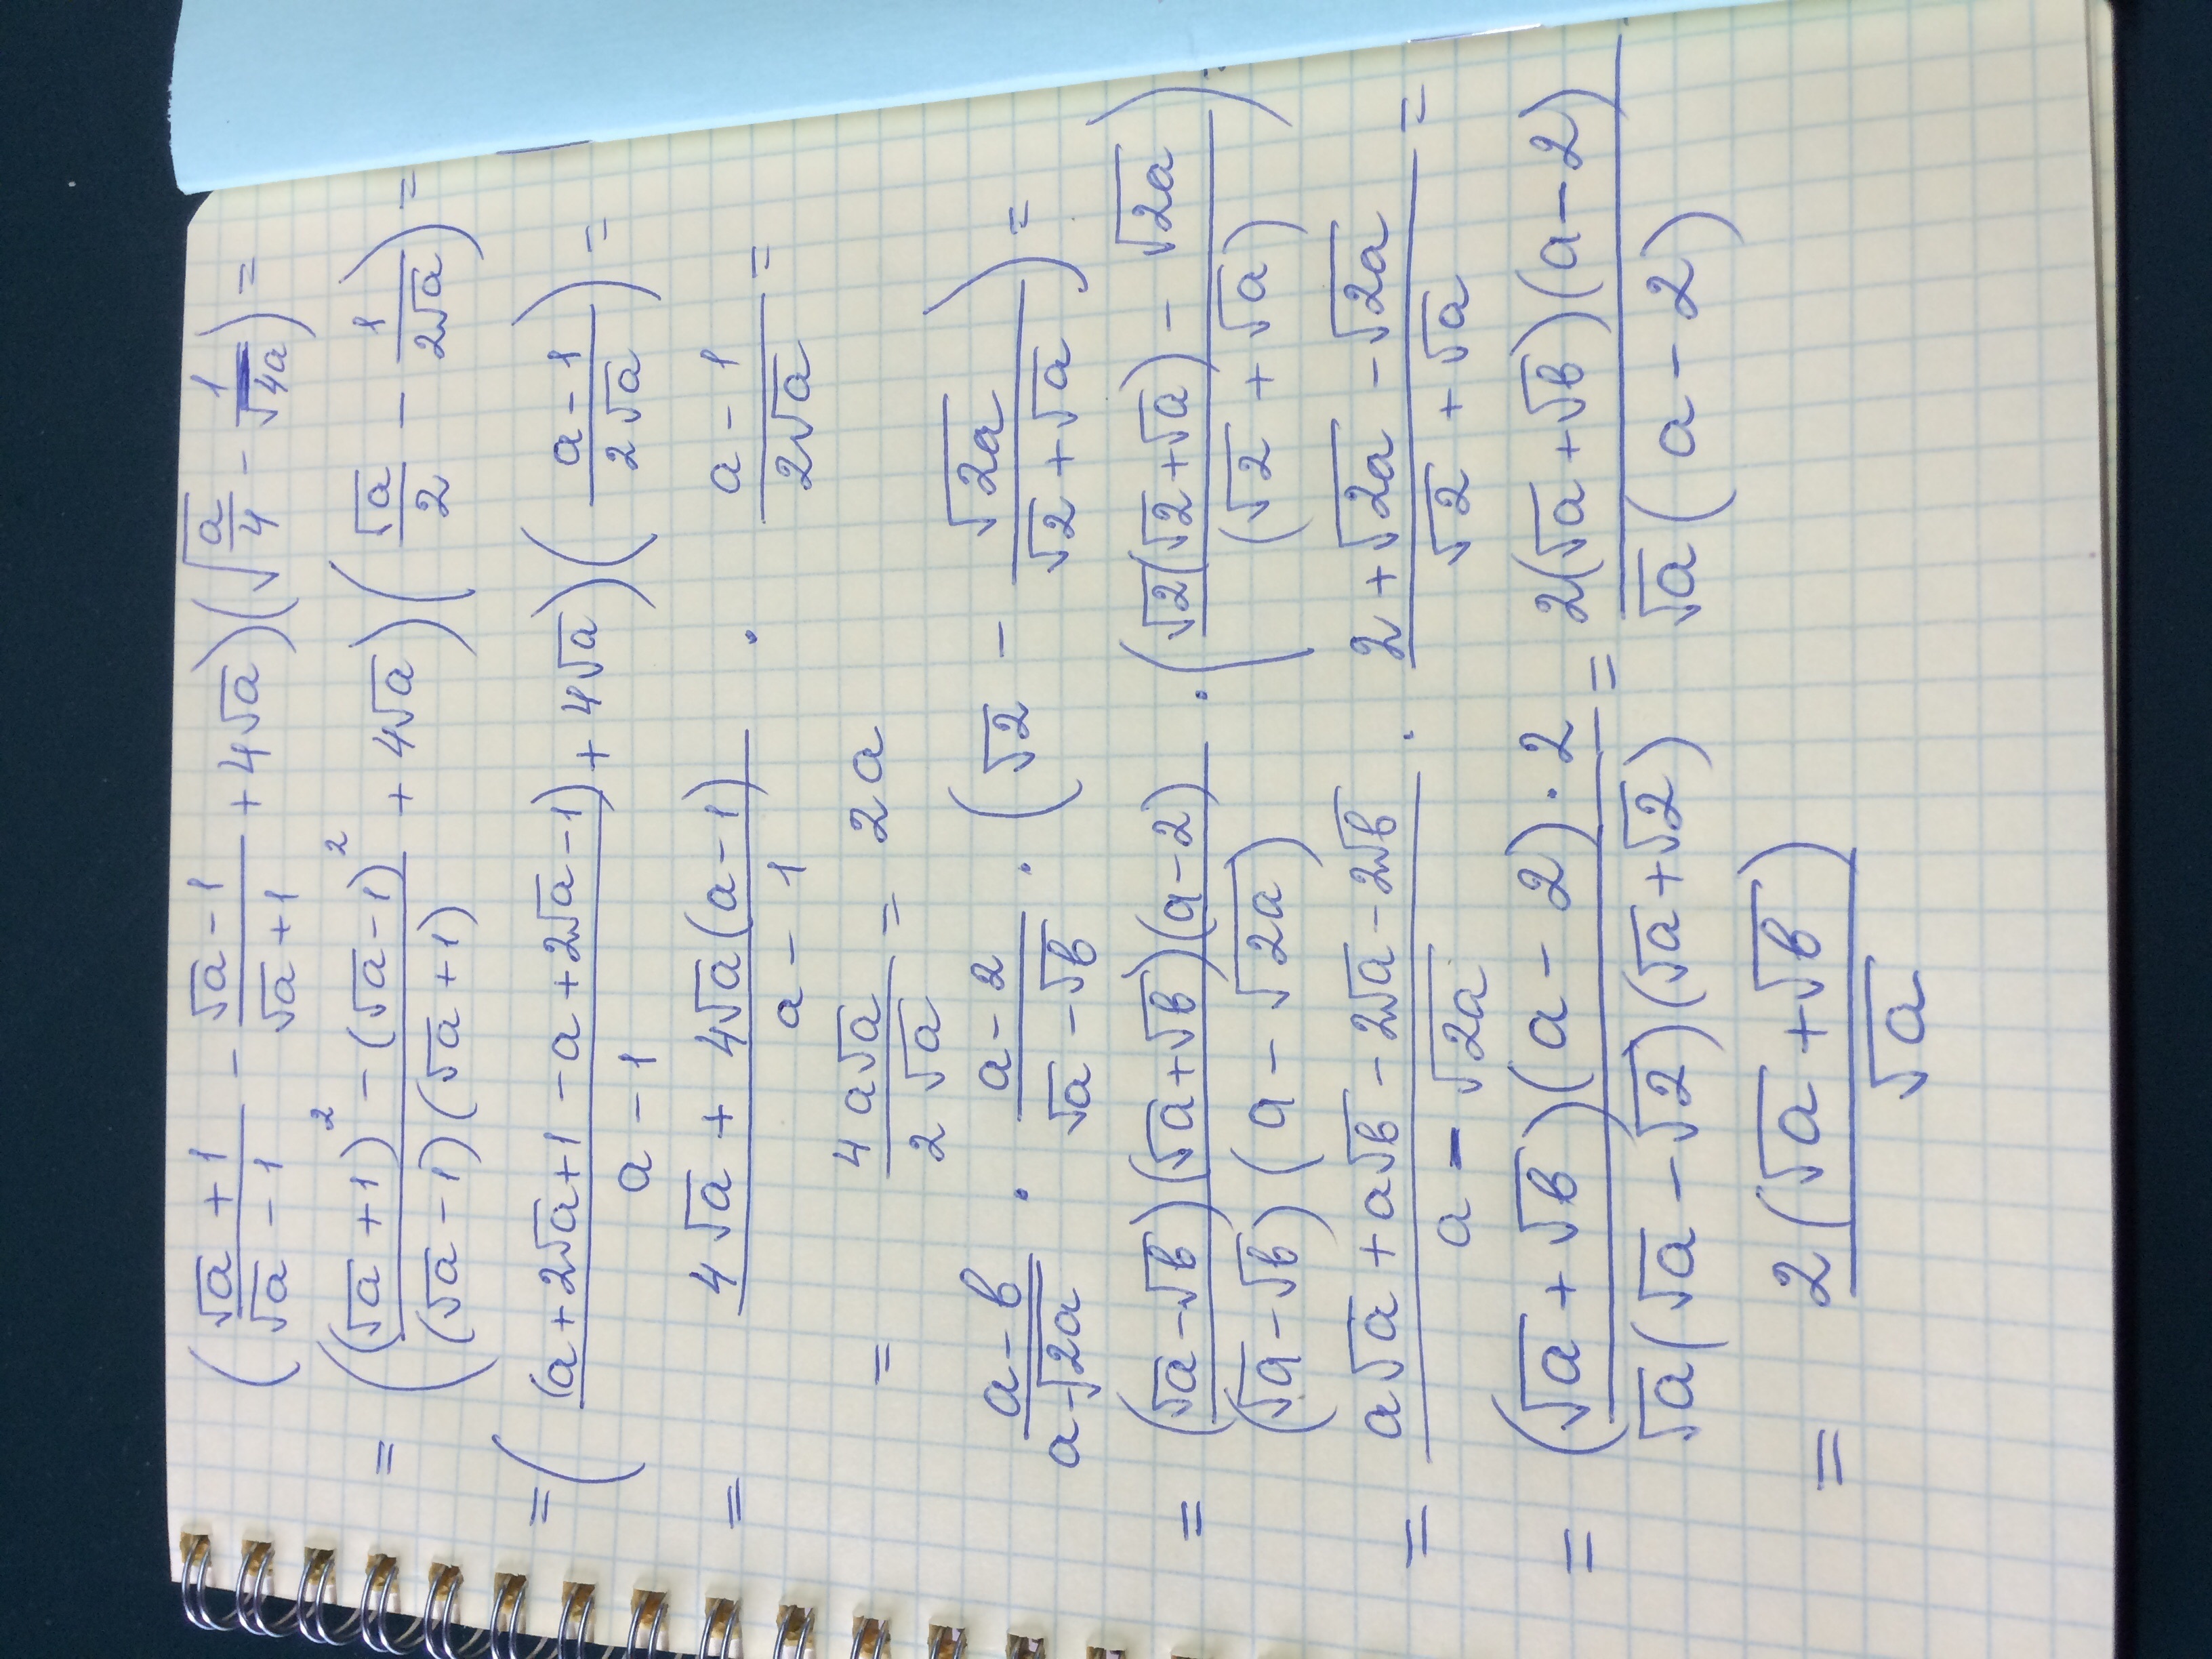 (√a + 1 / √a − 1 − √a − 1 / √a + 1 + 4√a)(√(a/4) − 1/√4a) =
= ((√a + 1)² − (√a − 1)² / (√a − 1)(√a + 1) + 4√a)(√a/2 − 1/2√a) =
= ((a + 2√a + 1 − a + 2√a − 1) / a − 1 + 4√a)(a − 1 / 2√a) =
= 4√a + 4√a(a − 1) / a − 1 · a − 1 / 2√a =
= 4a√a / 2√a = 2a
a − b / a − √2a · a − 2 / √a − √b · (√2 − √2a / √2 + √a) =
= (√a − √b)(√a + √b)(a − 2) / (√a − √b)(a − √2a) · (√2(√2 + √a) − √2a / (√2 + √a)) =
= a√a + a√b − 2√a − 2√b / a − √2a · 2 + √2a − √2a / √2 + √a =
= (√a + √b)(a − 2) · 2 / √a(√a − √2)(√a + √2) = 2(√a + √b)(a − 2) / √a(a − 2)
= 2(√a + √b) / √a